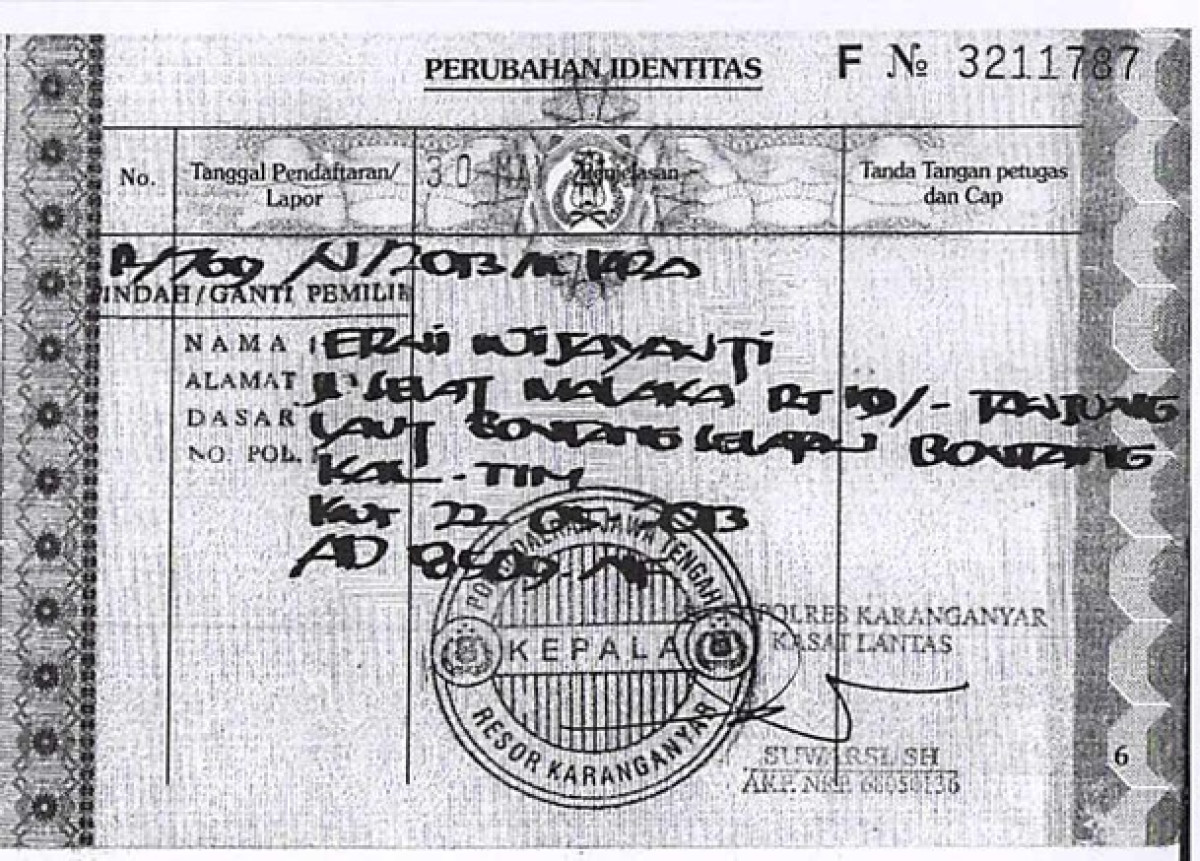 PERUBAHAN IDENTITAS
F № 3211787
No.
Tanggal Pendaftaran/
Lapor
30 MAY
Penjelasan
Tanda Tangan petugas
dan Cap
/2013/
INDAH/GANTI PEMILIK
NAMA : ERNI WIJAYANTI
ALAMAT Jl SELAT MALAKA RT 19/- TANJUNG
DASAR LAUT BONTANG SELATAN BONTANG
NO. POL. KAL-TIM
22 2013
AD 8509
DAERAH JAWA TENGAH
KEPALA
RESOR KARANGANYAR
POLRES KARANGANYAR
KASAT LANTAS
SUWARSI, SH
AKP. NRP 68050136
6